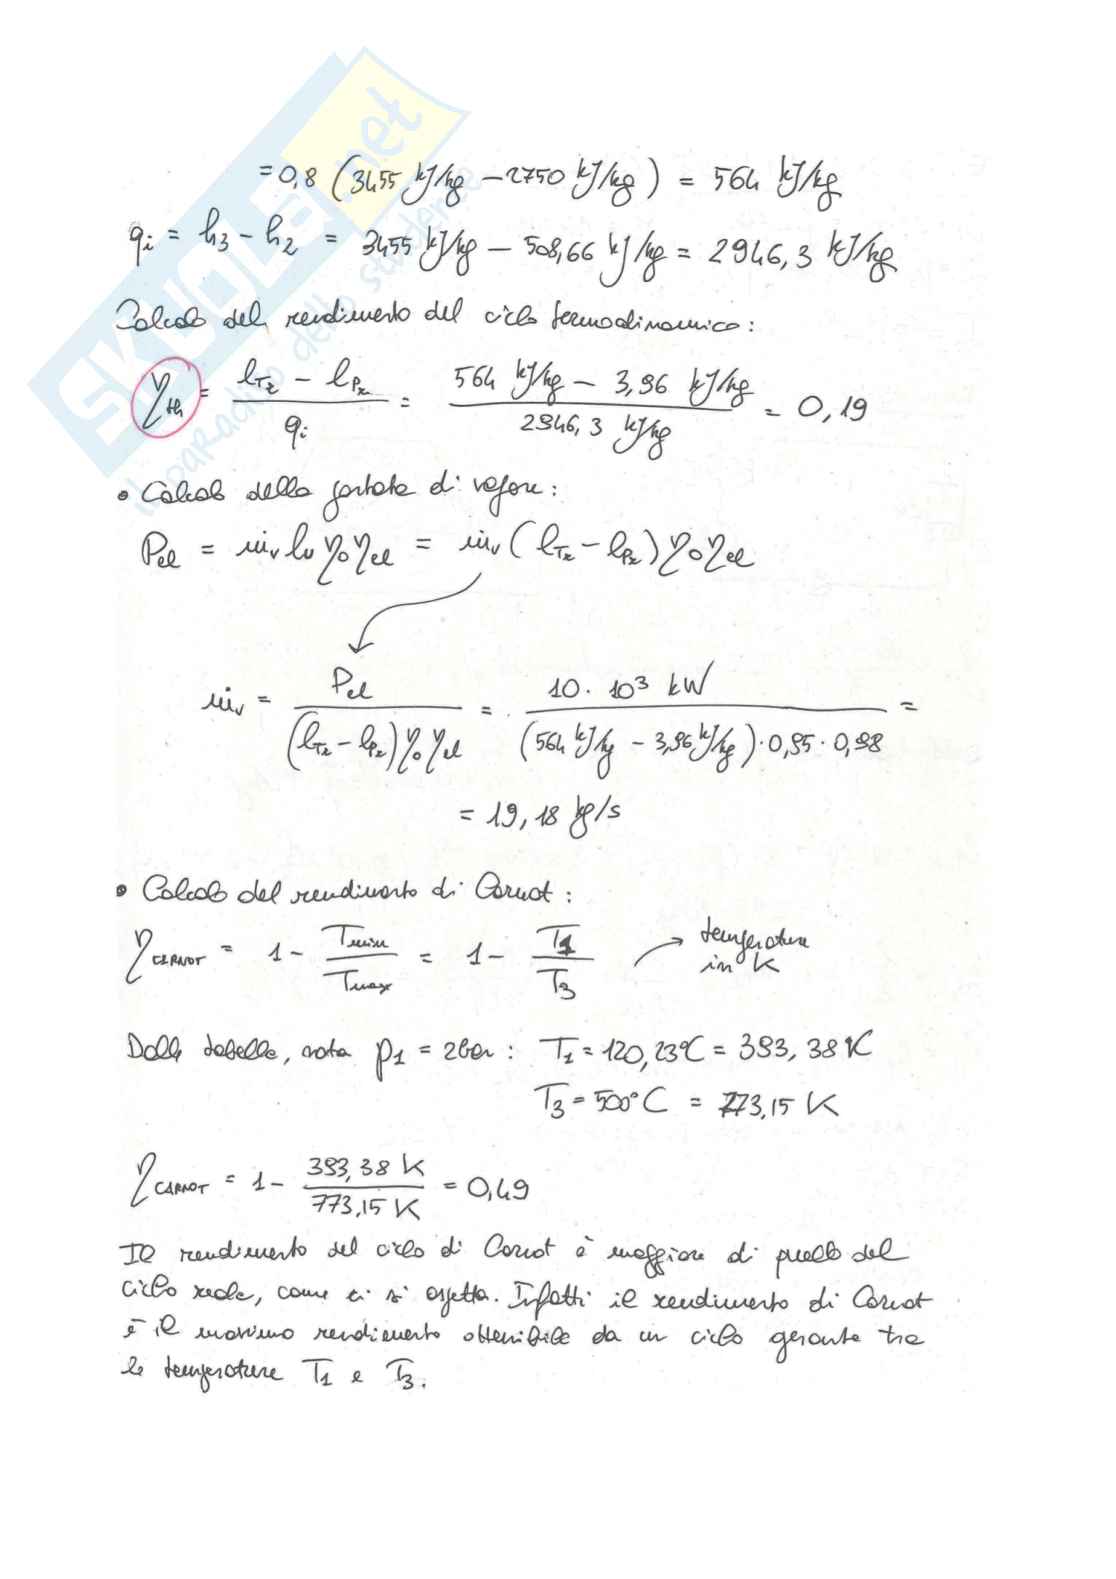 = 0,8 (3455 kJ/kg - 2750 kJ/kg) = 564 kJ/kg
qi = h3 - h2 = 3455 kJ/kg - 508,66 kJ/kg = 2946,3 kJ/kg
Calcolo del rendimento del ciclo termodinamico:
ηth = (lTr - lPr) / qi = (564 kJ/kg - 3,96 kJ/kg) / 2946,3 kJ/kg = 0,19
• Calcolo della portata di vapore:
Pel = ṁv lu ηo ηel = ṁv (lTr - lPr) ηo ηel
ṁv = Pel / ((lTr - lPr) ηo ηel) = 10 · 10³ kW / ((564 kJ/kg - 3,96 kJ/kg) · 0,95 · 0,98) =
= 19,18 kg/s
• Calcolo del rendimento di Carnot:
ηCARNOT = 1 - Tmin / Tmax = 1 - T1 / T3 → temperature
in K
Dalle tabelle, nota p1 = 2bar: T1 = 120,23°C = 393,38 K
T3 = 500°C = 773,15 K
ηCARNOT = 1 - 393,38 K / 773,15 K = 0,49
Il rendimento del ciclo di Carnot è maggiore di quello del
ciclo reale, come ci si aspetta. Infatti il rendimento di Carnot
è il massimo rendimento ottenibile da un ciclo operante tra
le temperature T1 e T3.
SKUOLA.net
il paradiso dello studente